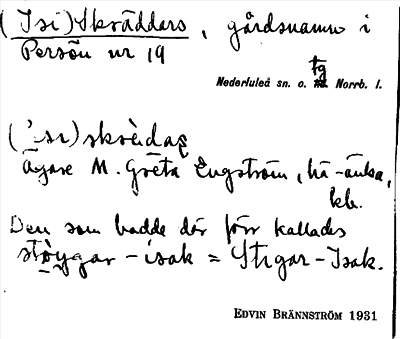 (Isi)Skräddars, gårdsnamn i
Persön nr 19
tg
Nederluleå sn. o. Norrb. l.
Ägare M. Greta Engström, hä-änka,
kb.
Den som bodde där förr kallades
stöyggar-isak = Stigar-Isak.
EDVIN BRÄNNSTRÖM 1931